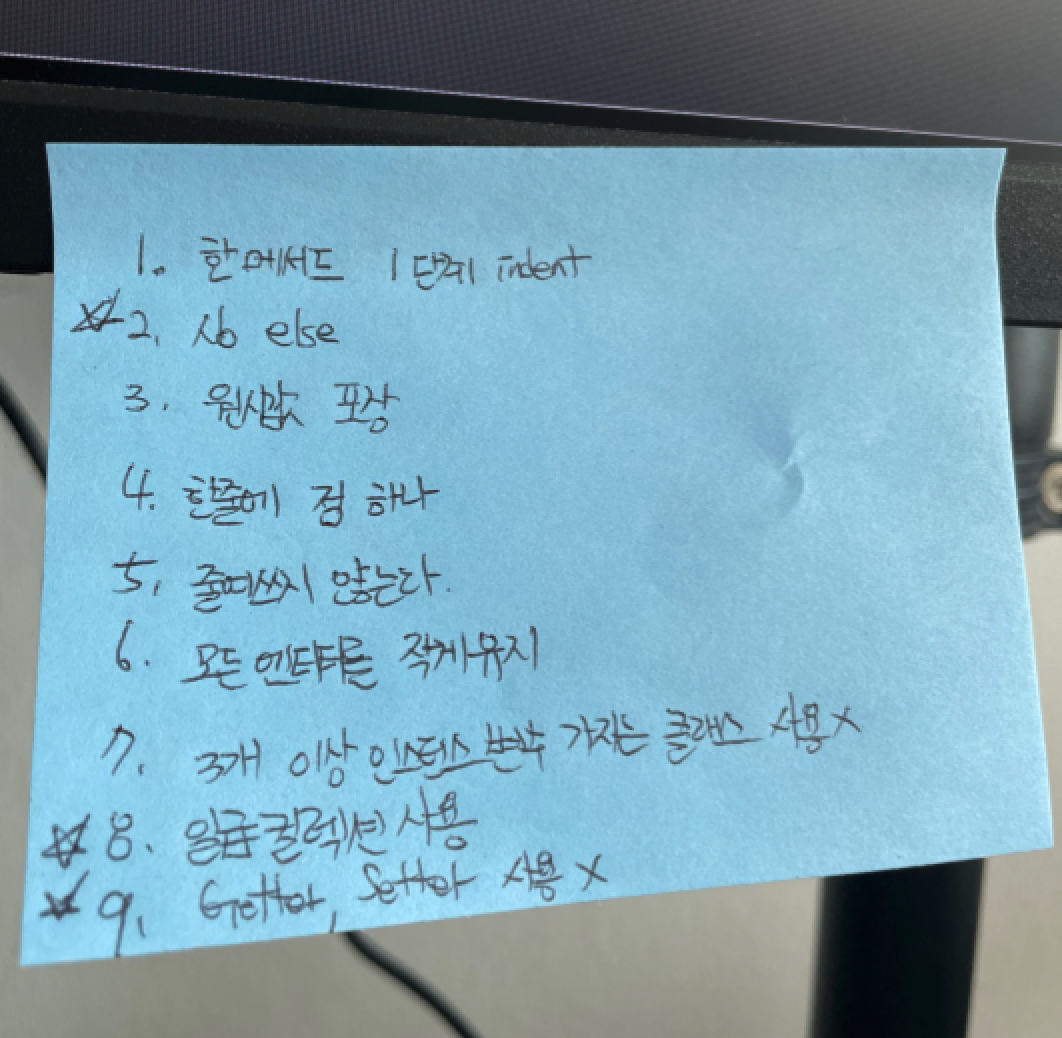 1. 한 메서드 1단계 indent
☆2. No else
3. 원시값 포장
4. 한줄에 점 하나
5. 줄여쓰지 않는다.
6. 모든 엔티티를 작게 유지
7. 3개 이상 인스턴스 변수 가지는 클래스 사용 X
☆8. 일급컬렉션 사용
☆9. Getter, Setter 사용 X